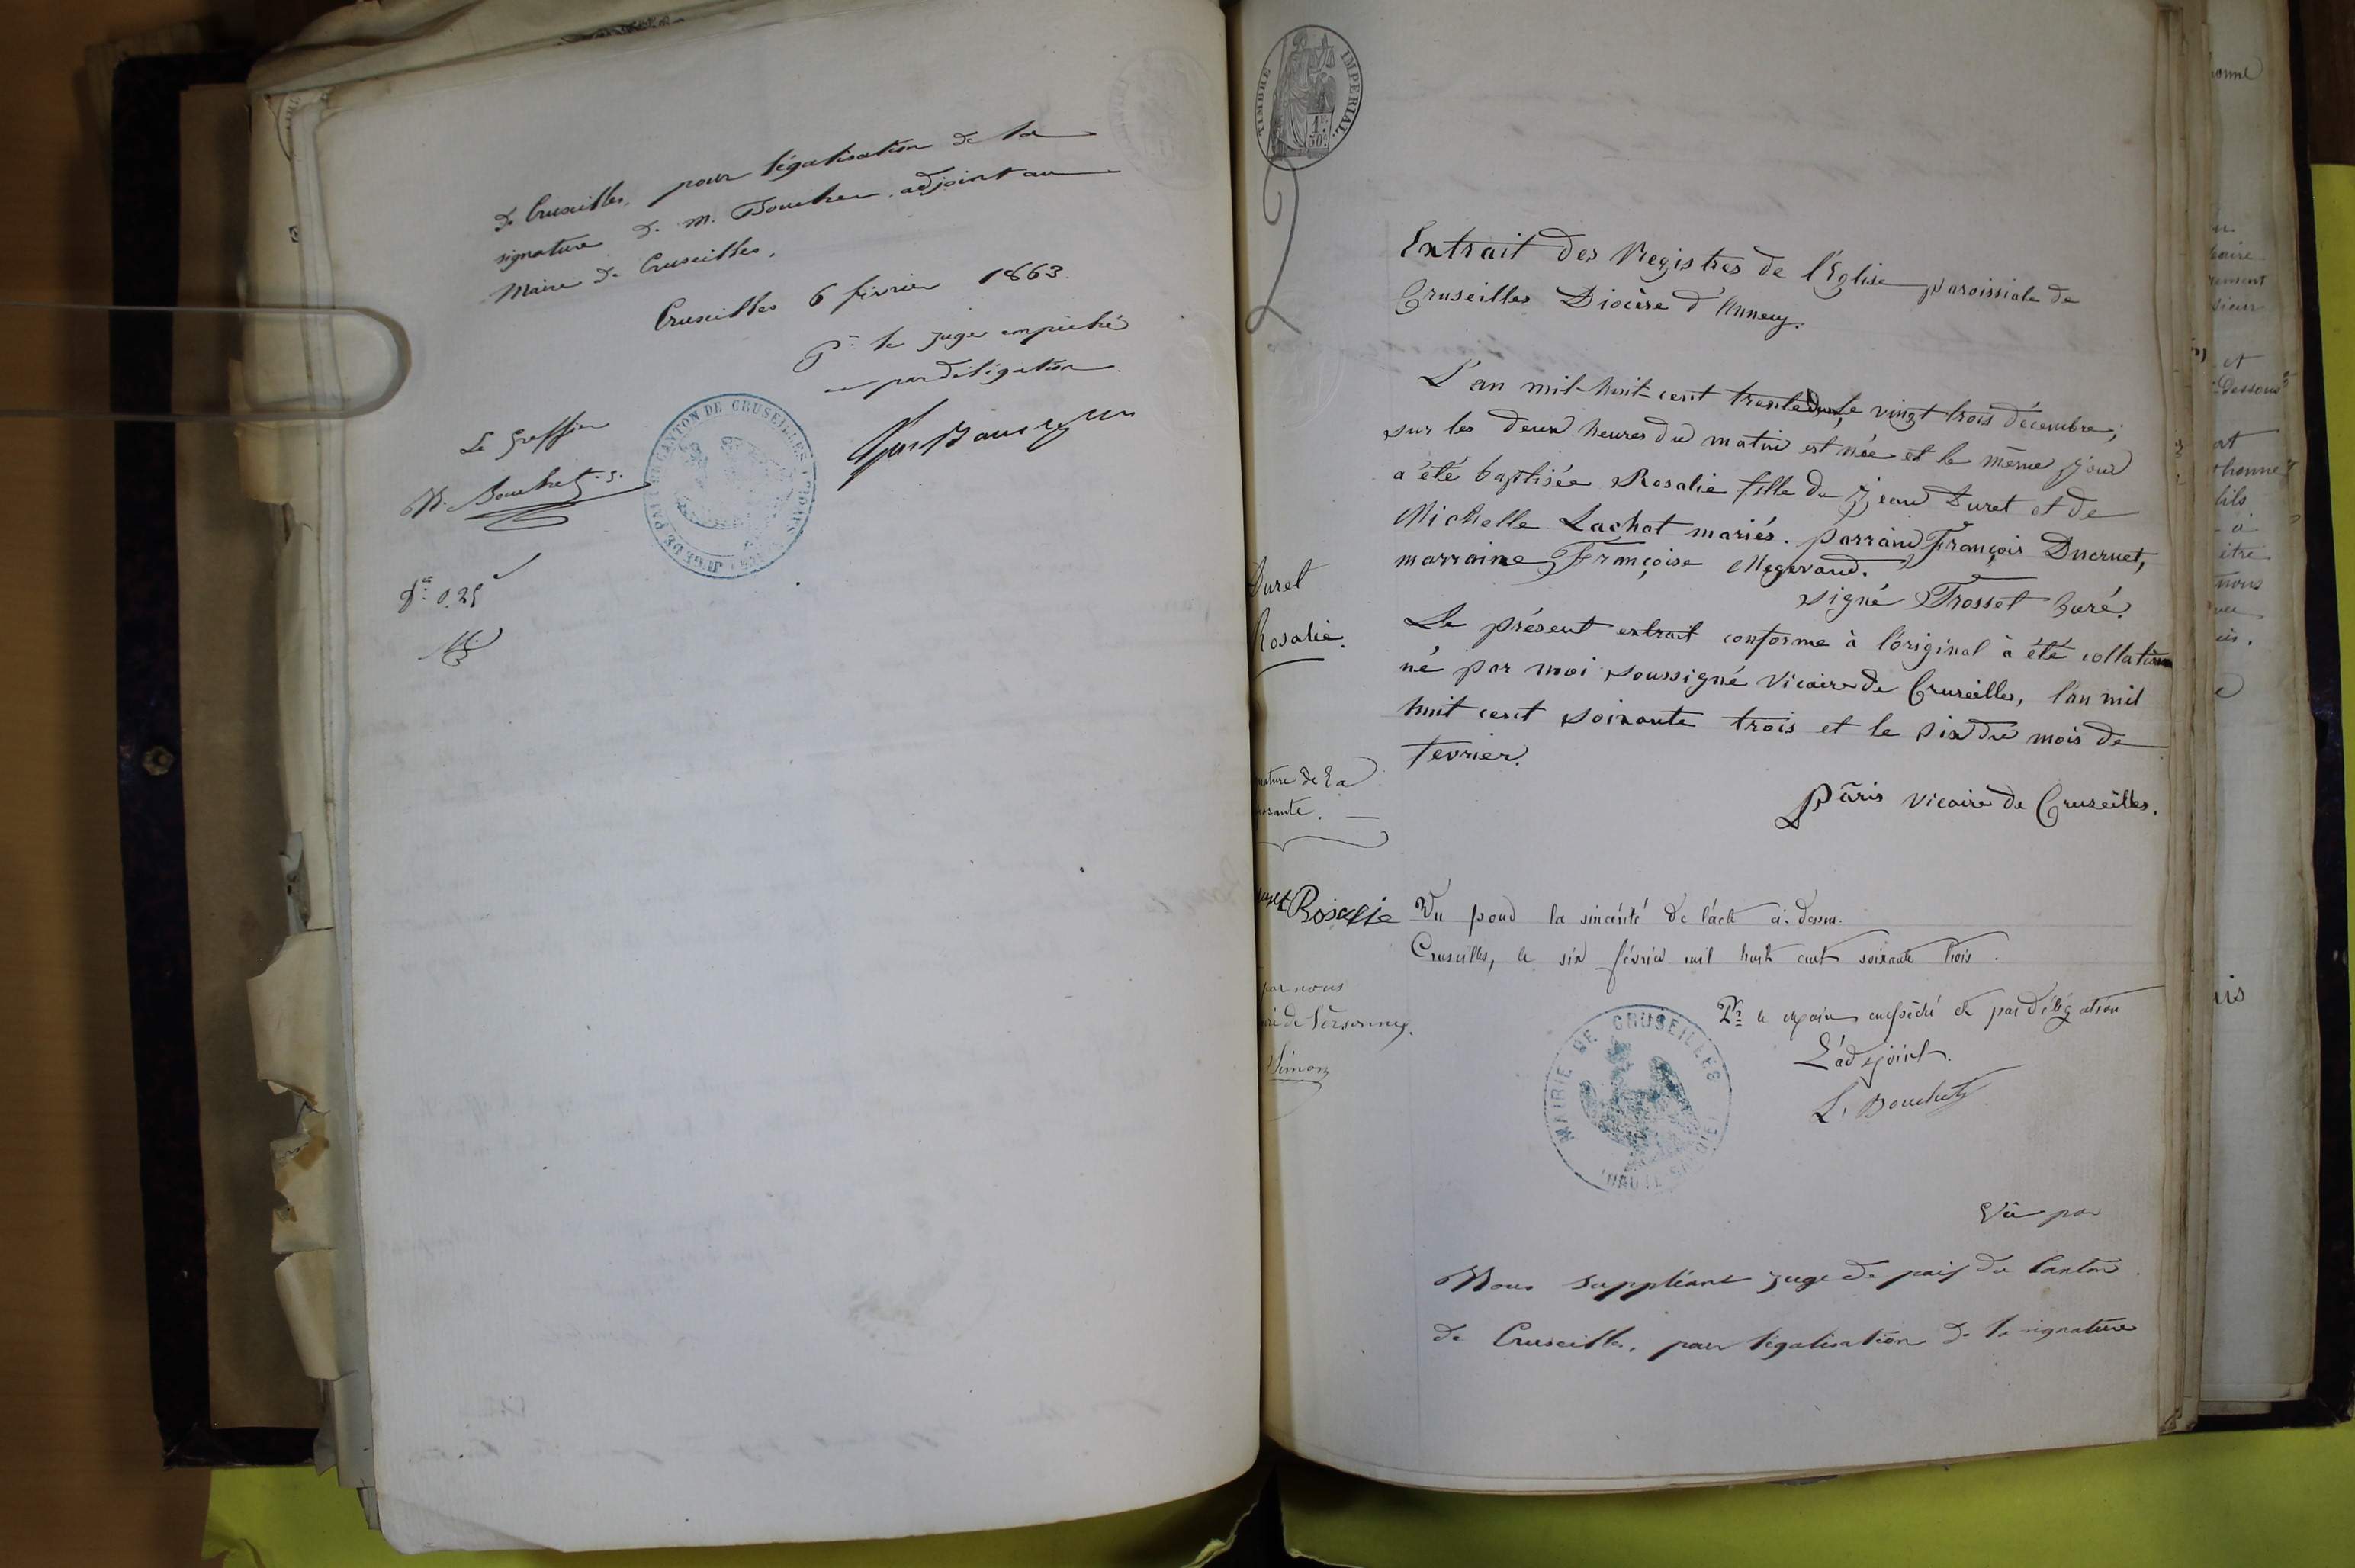 de Cruseilles, pour légalisation de la
signature de M. Bouchet adjoint au
Maire de Cruseilles.
Cruseilles 6 février 1863.
Pr le juge empêché
et par délégation
Le Greffier
Bouchet
JUSTICE DE PAIX DU CANTON DE CRUSEILLES
0.25
TIMBRE IMPERIAL.
1F 50C
2
Extrait des Registres de l'Eglise paroissiale de
Cruseilles Diocèse d'Annecy.
L'an mil-huit-cent trente deux, le vingt trois décembre,
sur les deux heures du matin est née et le même jour
a été baptisée Rosalie fille de Jean Duret et de
Michelle Lachat mariés. parrain François Ducruet,
marraine Françoise Megevand.
signé Trosset Curé.
Duret
Rosalie.
Le présent extrait conforme à l'original à été collation
né par moi soussigné Vicaire de Cruseilles, l'an mil
huit cent soixante trois et le six du mois de
fevrier.
Pâris vicaire de Cruseilles.
nature de la
posante.
Rosalie
par nous
de Versonnex.
Simon
Vu pour la sincérité de l'acte ci-dessus.
Cruseilles, le six février mil huit cent soixante trois.
Pr le Maire empêché et par délégation
L'adjoint.
L. Bouchet
MAIRIE DE CRUSEILLES
HAUTE SAVOIE
Vu par
Nous suppléant juge de paix du Canton
de Cruseilles, pour légalisation de la signature